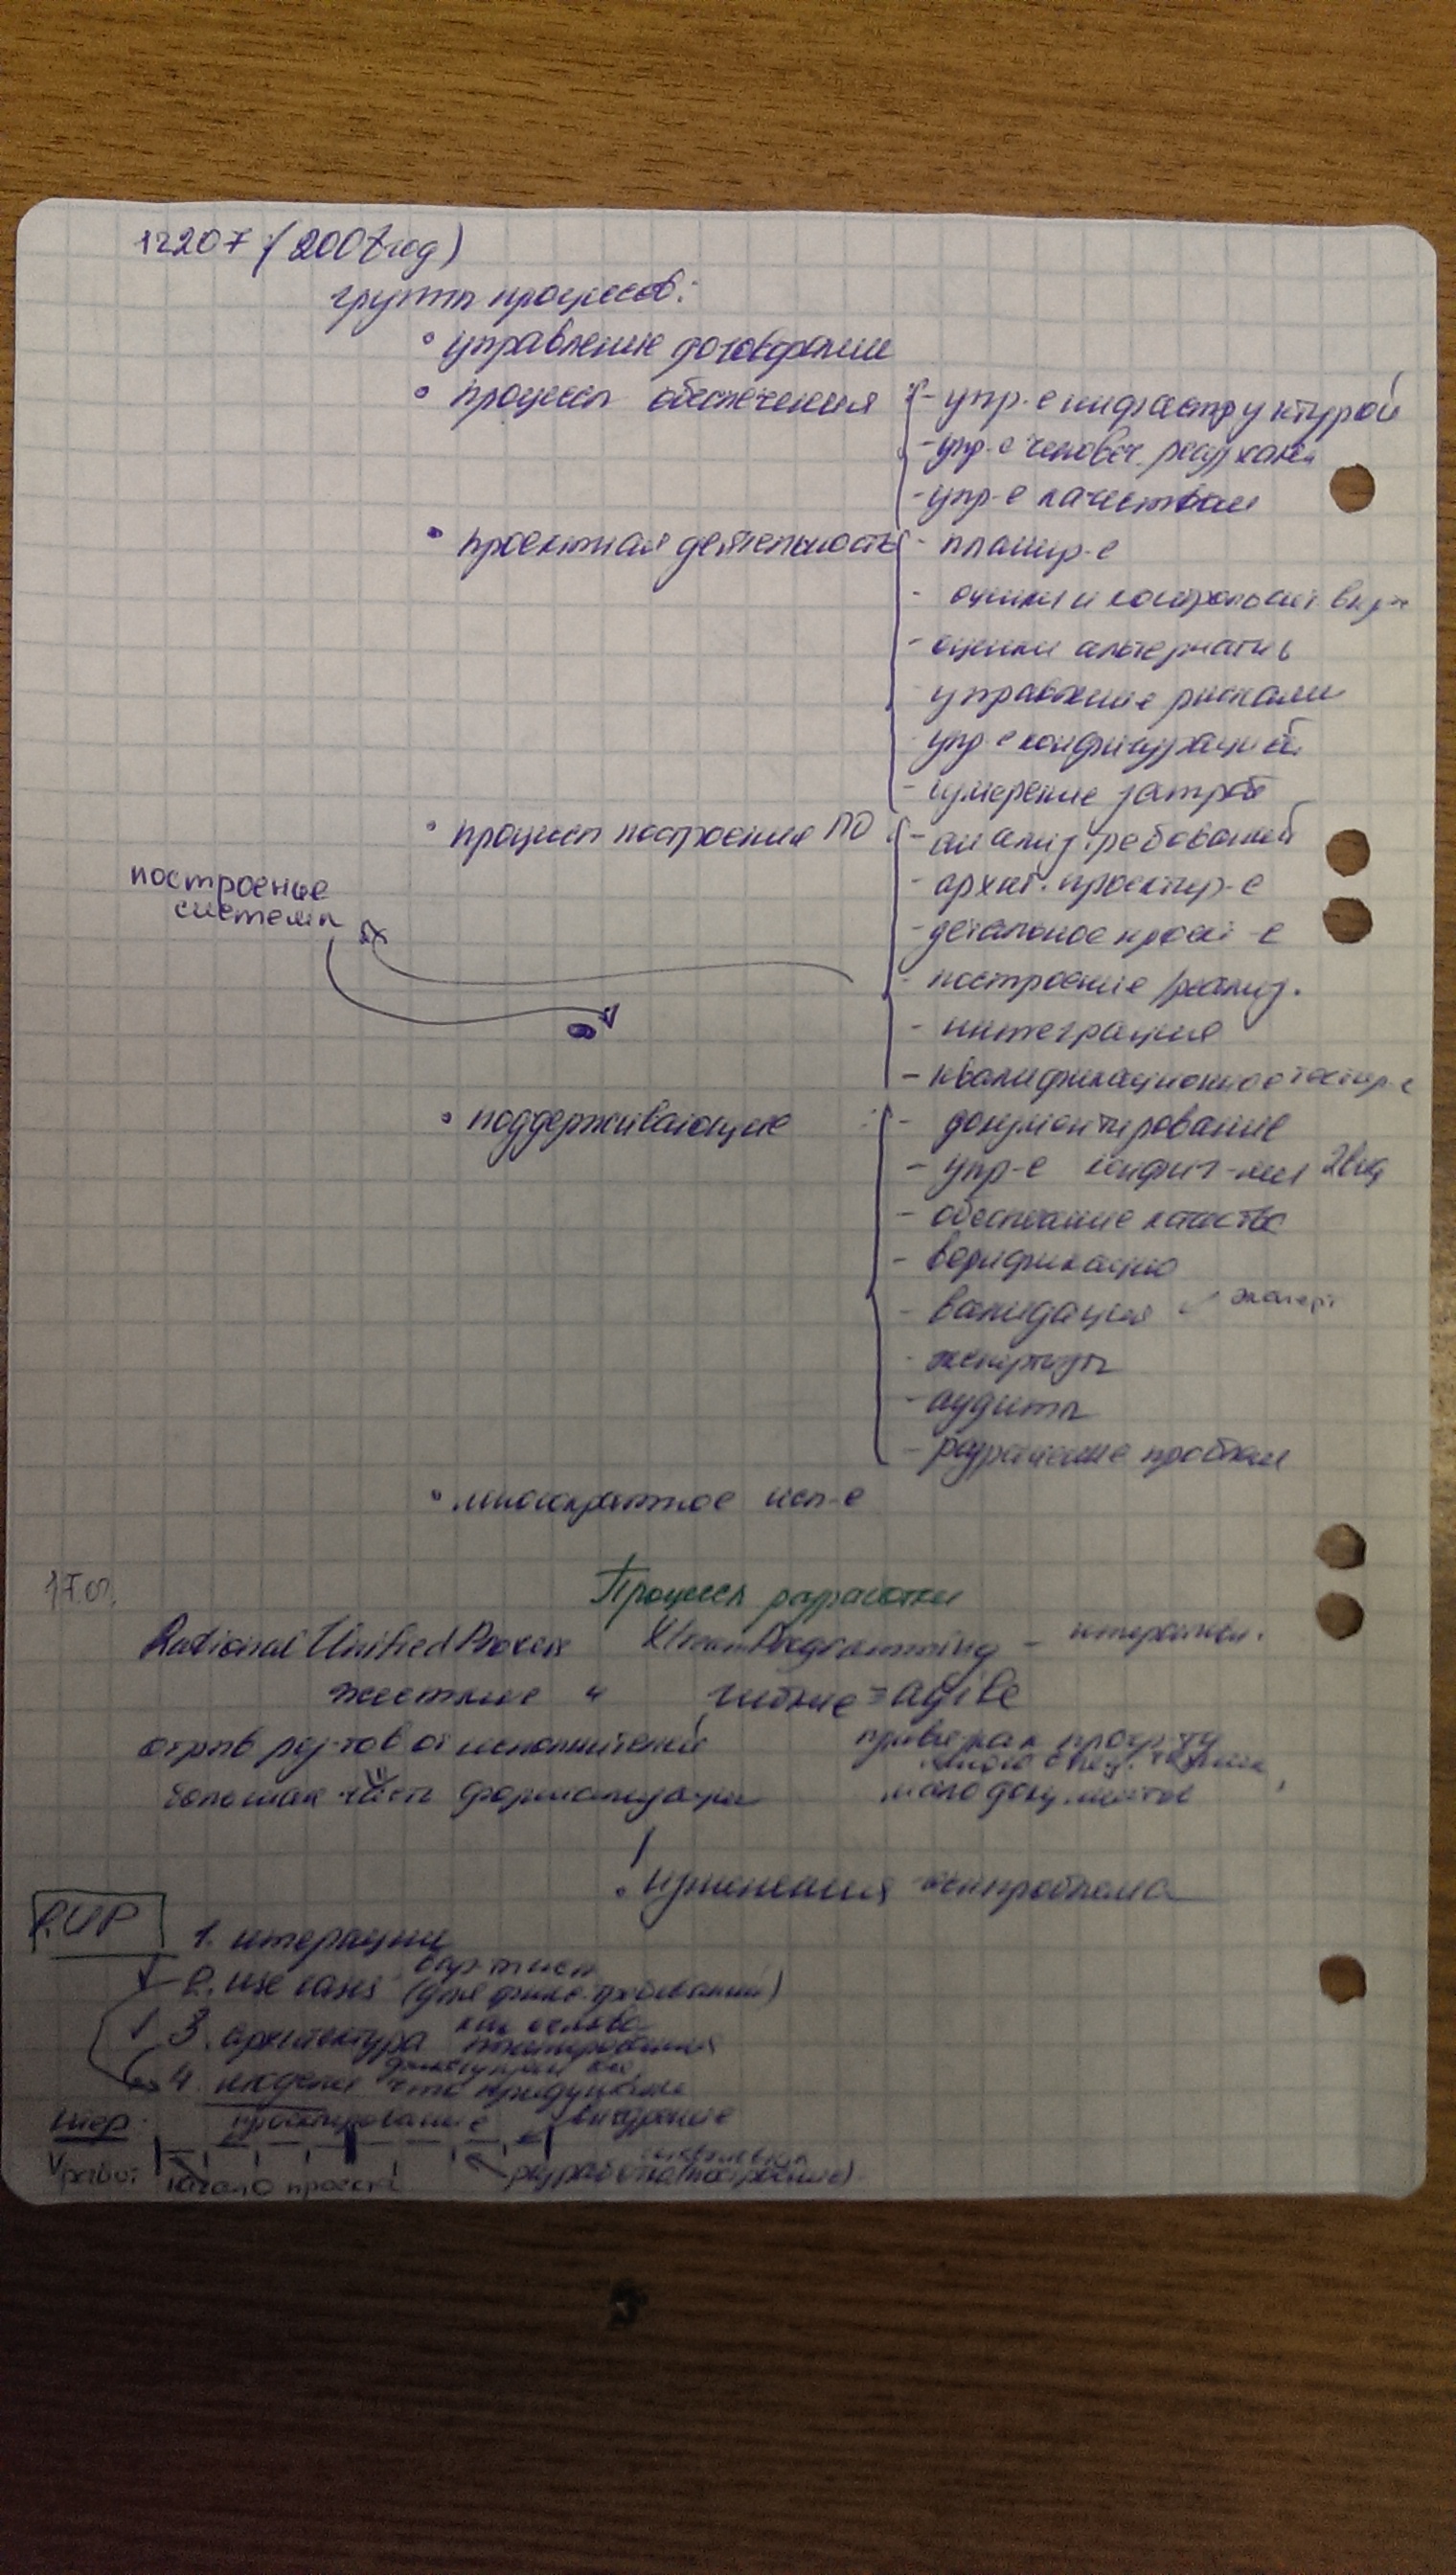 12207 (2007 год)
группы процессов:
• управление договорами
• процессы обеспечения
- упр-е инфраструктурой
- упр-е человеч. ресурсами
- упр-е качеством
• проектная деятельность
- планир-е
- оценки и контроль
- оценки альтернатив
управление рисками
упр-е конфигурацией
- измерение затрат
• процессы построения ПО
- анализ требований
- архит. проектир-е
- детальное проект-е
- построение / реализ.
- интеграция
- квалификационное тестир-е
построение
системы
• поддерживающие
- документирование
- упр-е конфиг-ями
- обеспечение качества
- верификацию
- валидация
- экспертизы
- аудиты
- разрешение проблем
• многократное исп-е
17.02.
Процессы разработки
Rational Unified Process XtremProgramming -
жесткие гибкие = agile
отрыв рез-тов от исполнителей
большая часть формализации
мало документов
• изменения
RUP
1. итерации
2. use cases
3. архитектура как основа
планирования
4. модели
итер.
проектирование внедрение
начало проекта